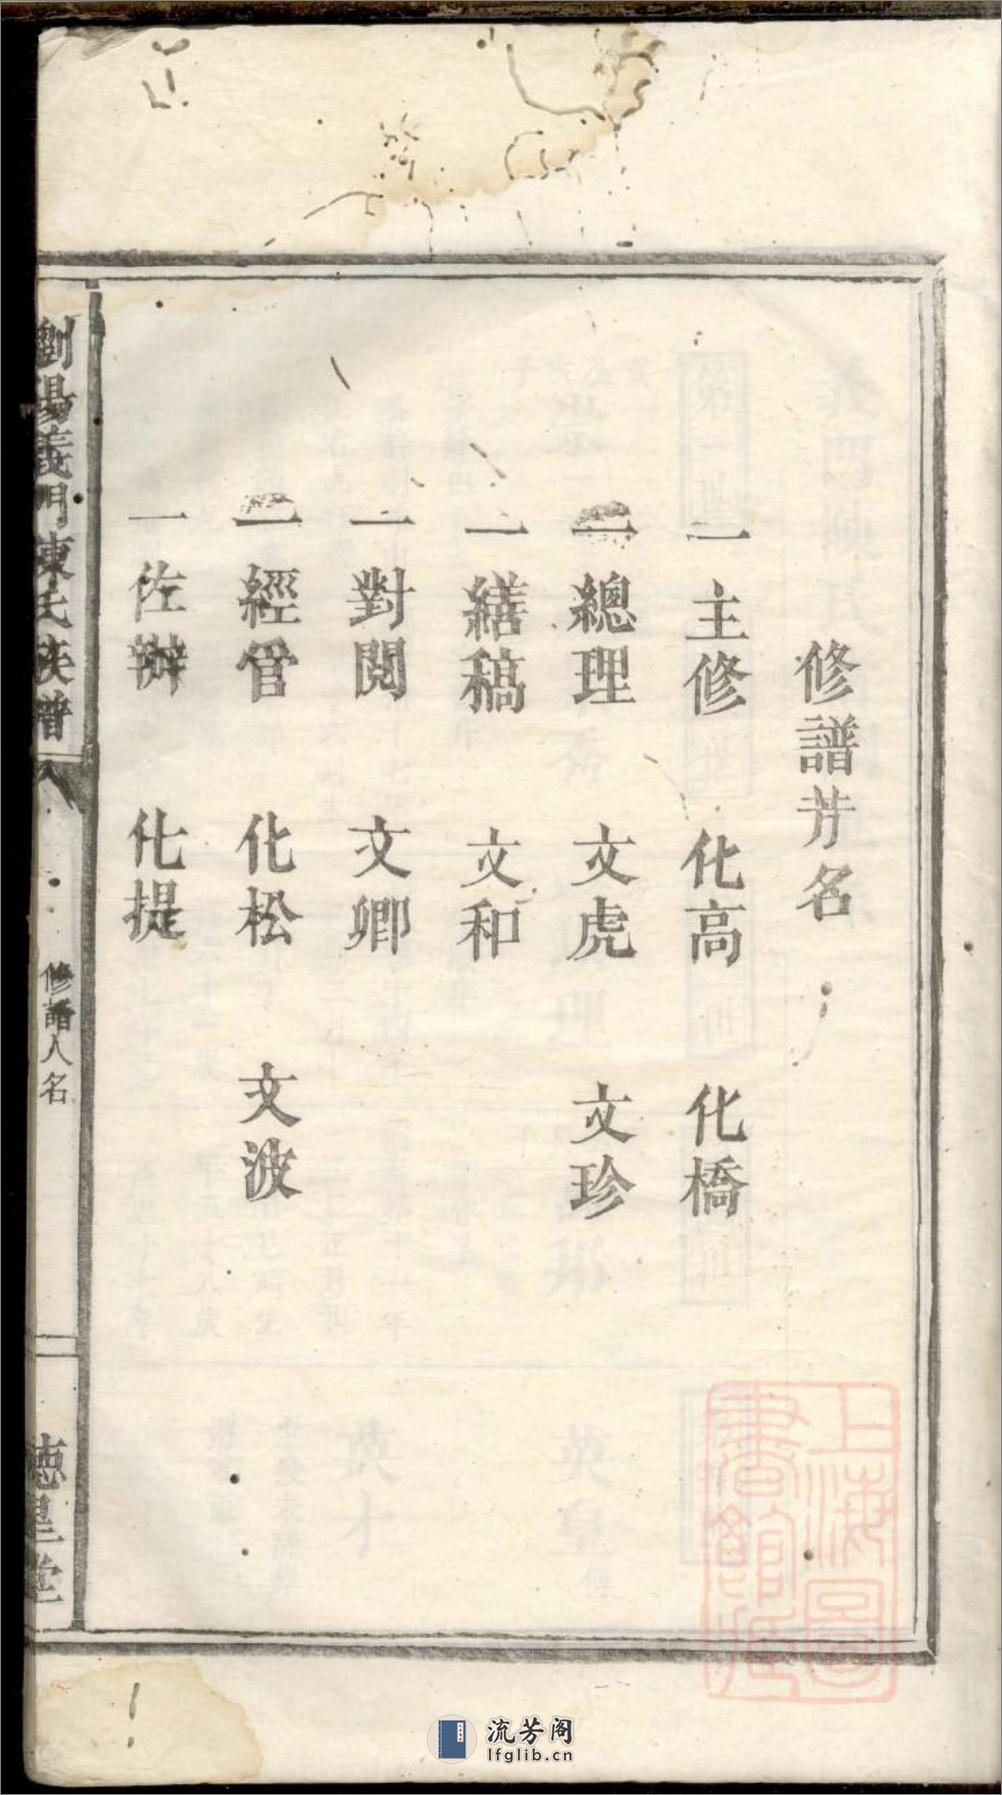 修譜芳名
一主修 化高 化橋
一總理 文虎 文珍
一繕稿 文和
一對閱 文卿
一經管 化松 文波
一佐辦 化提
瀏陽義門陳氏族譜
修譜人名
德星堂
上海圖書館藏
流芳阁
lfglib.cn